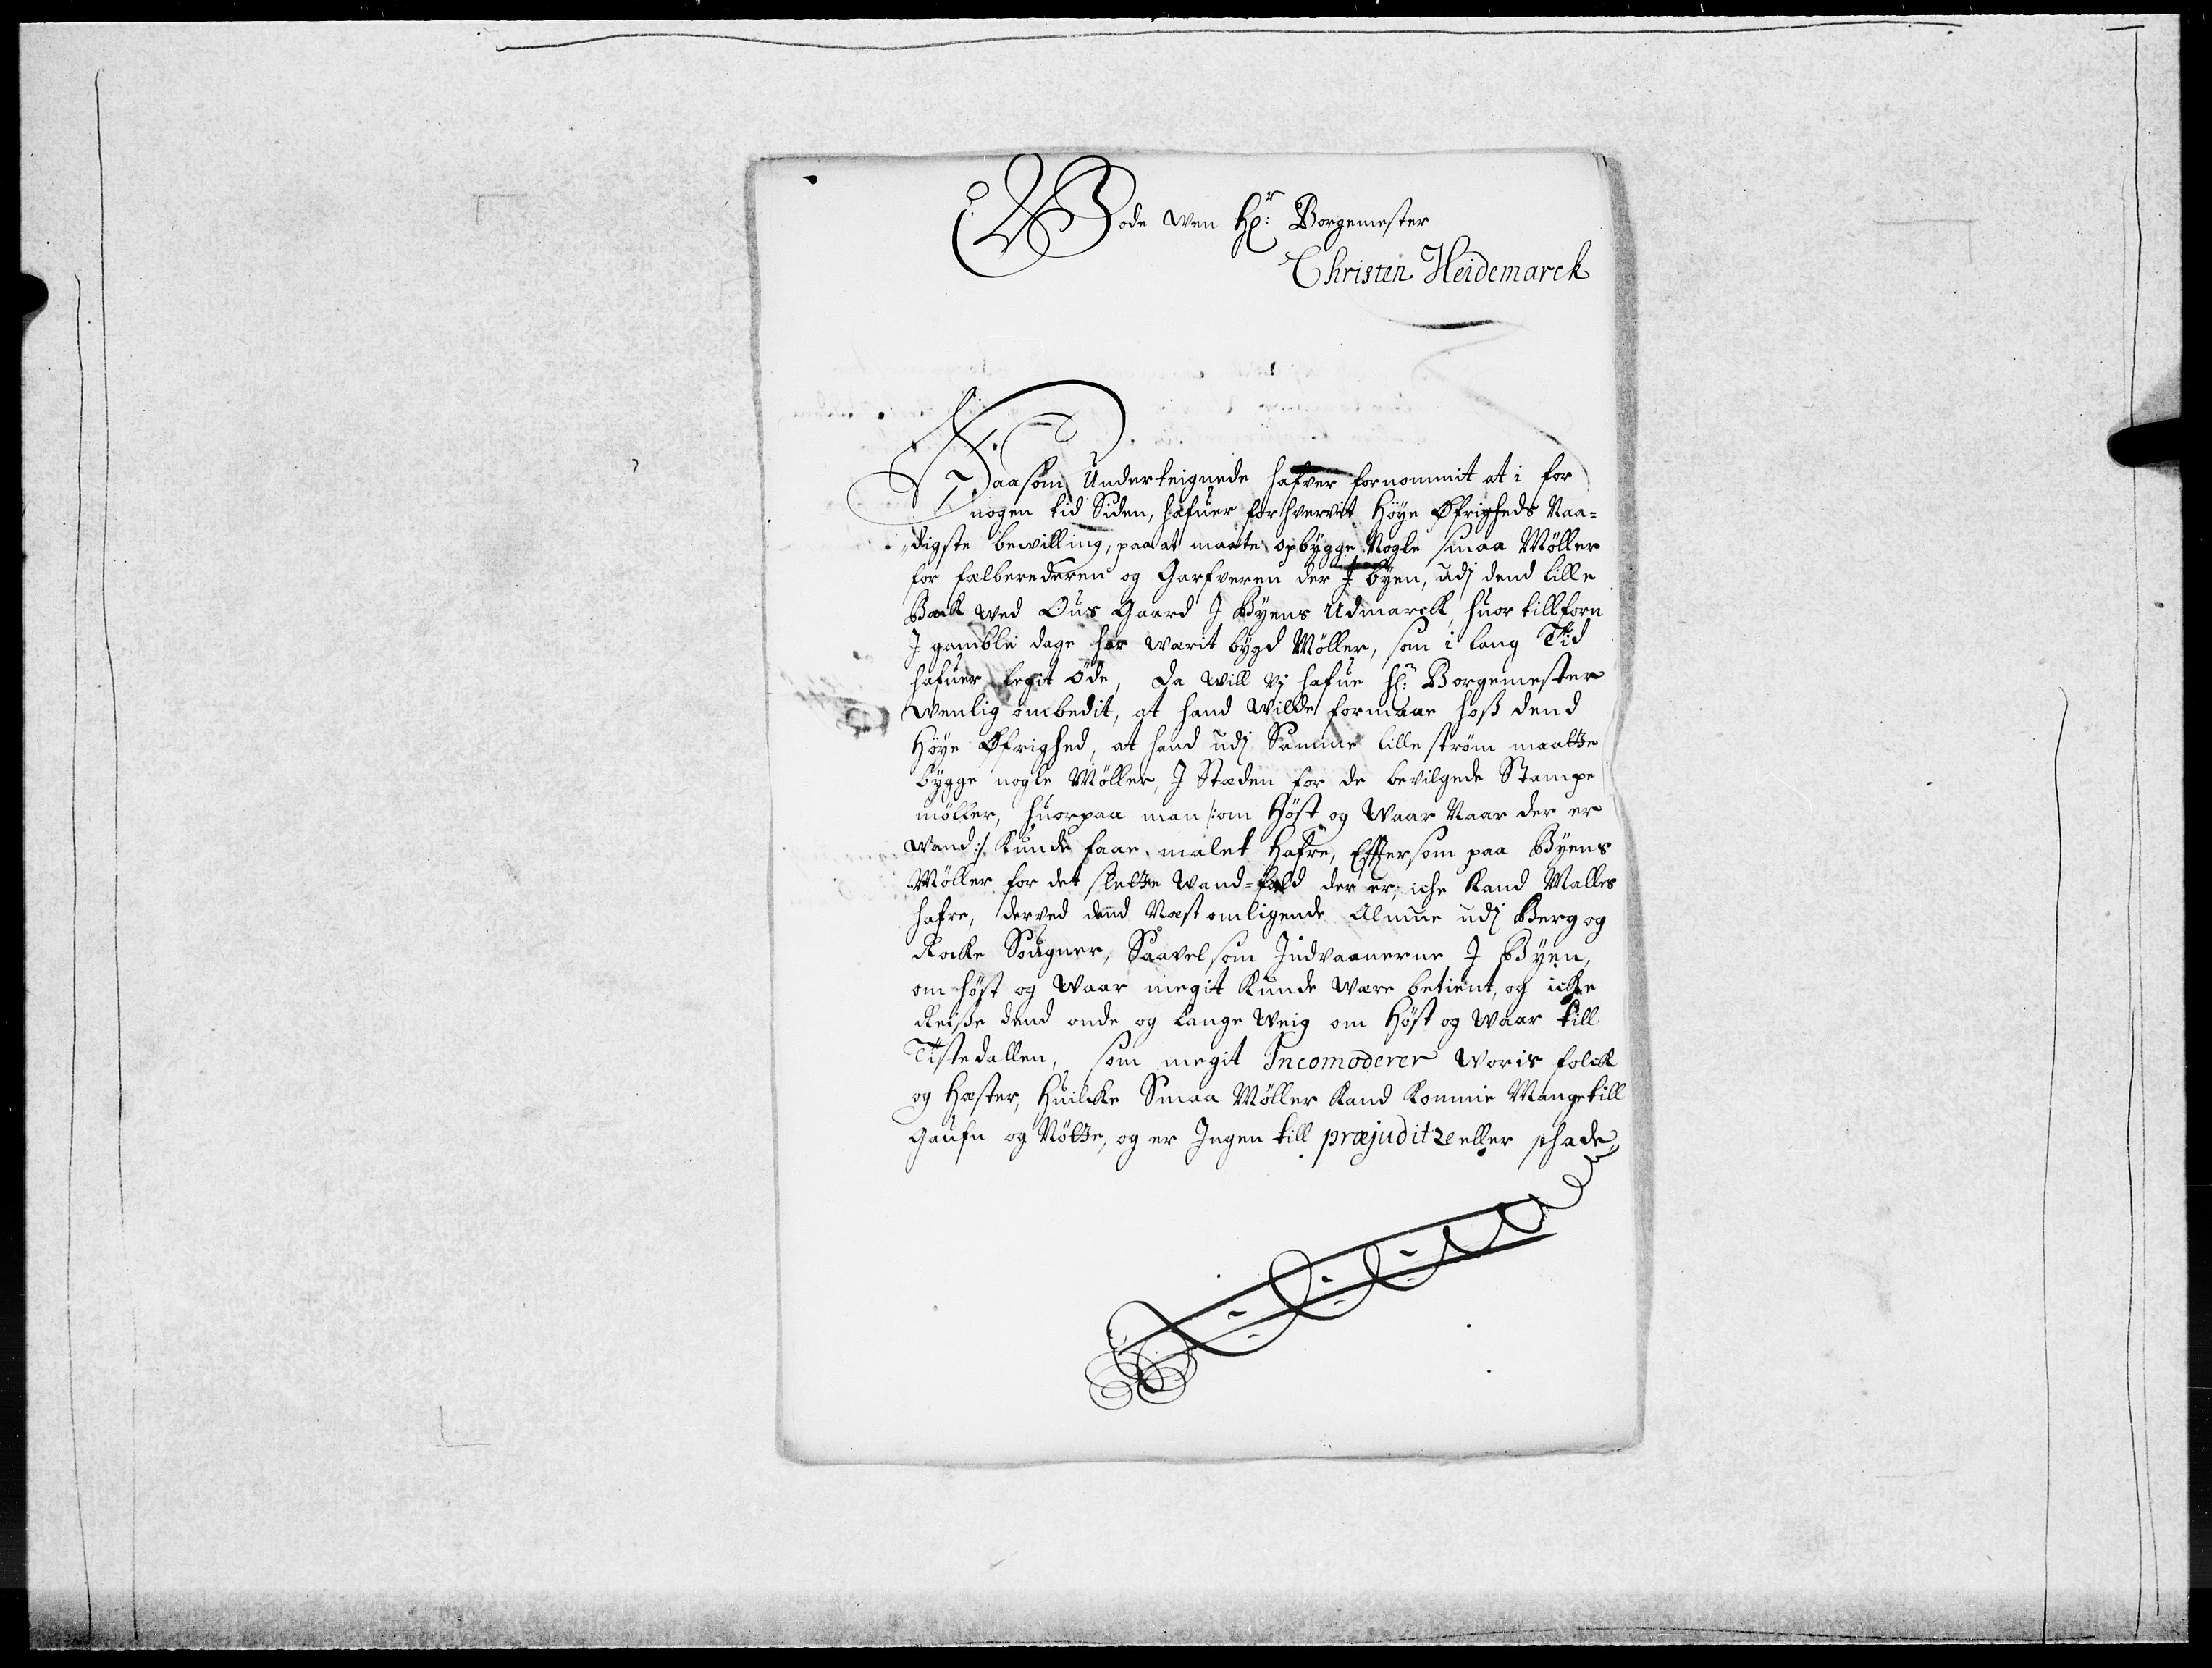 Gode wen Hr: Borgemester
Christen Heidemarck
Saasom Underteignede hafver fornommit at i for
nogen tid Siden, hafuer forhvervit Höye Øfrigheds Naa=
digste bewilling, paa at maate opbygge Nogle smaa Möller
for fælberederen og Garfveren der J byen, udj dend lille
Bæk wed Ous Gaard J Byens Udmarck, huor tillforn
J gamble dage har warit bygd Möller, som i lang Tid
hafuer legit öde, da will vj hafue Hr: Borgemester
wenlig ombedit, at hand wilde formaae hoß dend
Höye Øfrighed, at hand udj Samme lille ström maatte
bygge nogle Möller, J Stæden for de bevilgede Stampe
möller, huorpaa man /:om Höst og Waar Naar der er
wand:/ kunde faae malet Hafre, Effersom paa Byens
Möller for det slette Wand=fald der er, iche kand Malles
hafre, derved dend Næst omligende Almue udj Berg og
Rocke Sougner, Saavelsom Indvaanerne J Byen,
om höst og Waar megit kunde være betient, og icke
Reiße dend onde og lange Weig om Höst og Waar till
Tistedallen, som megit Incomoderer Woris folck
og Hæster, Huilcke Smaa Möller kand komme Mange till
Gaufn og Nötte, og er Ingen till præjuditze eller schade,